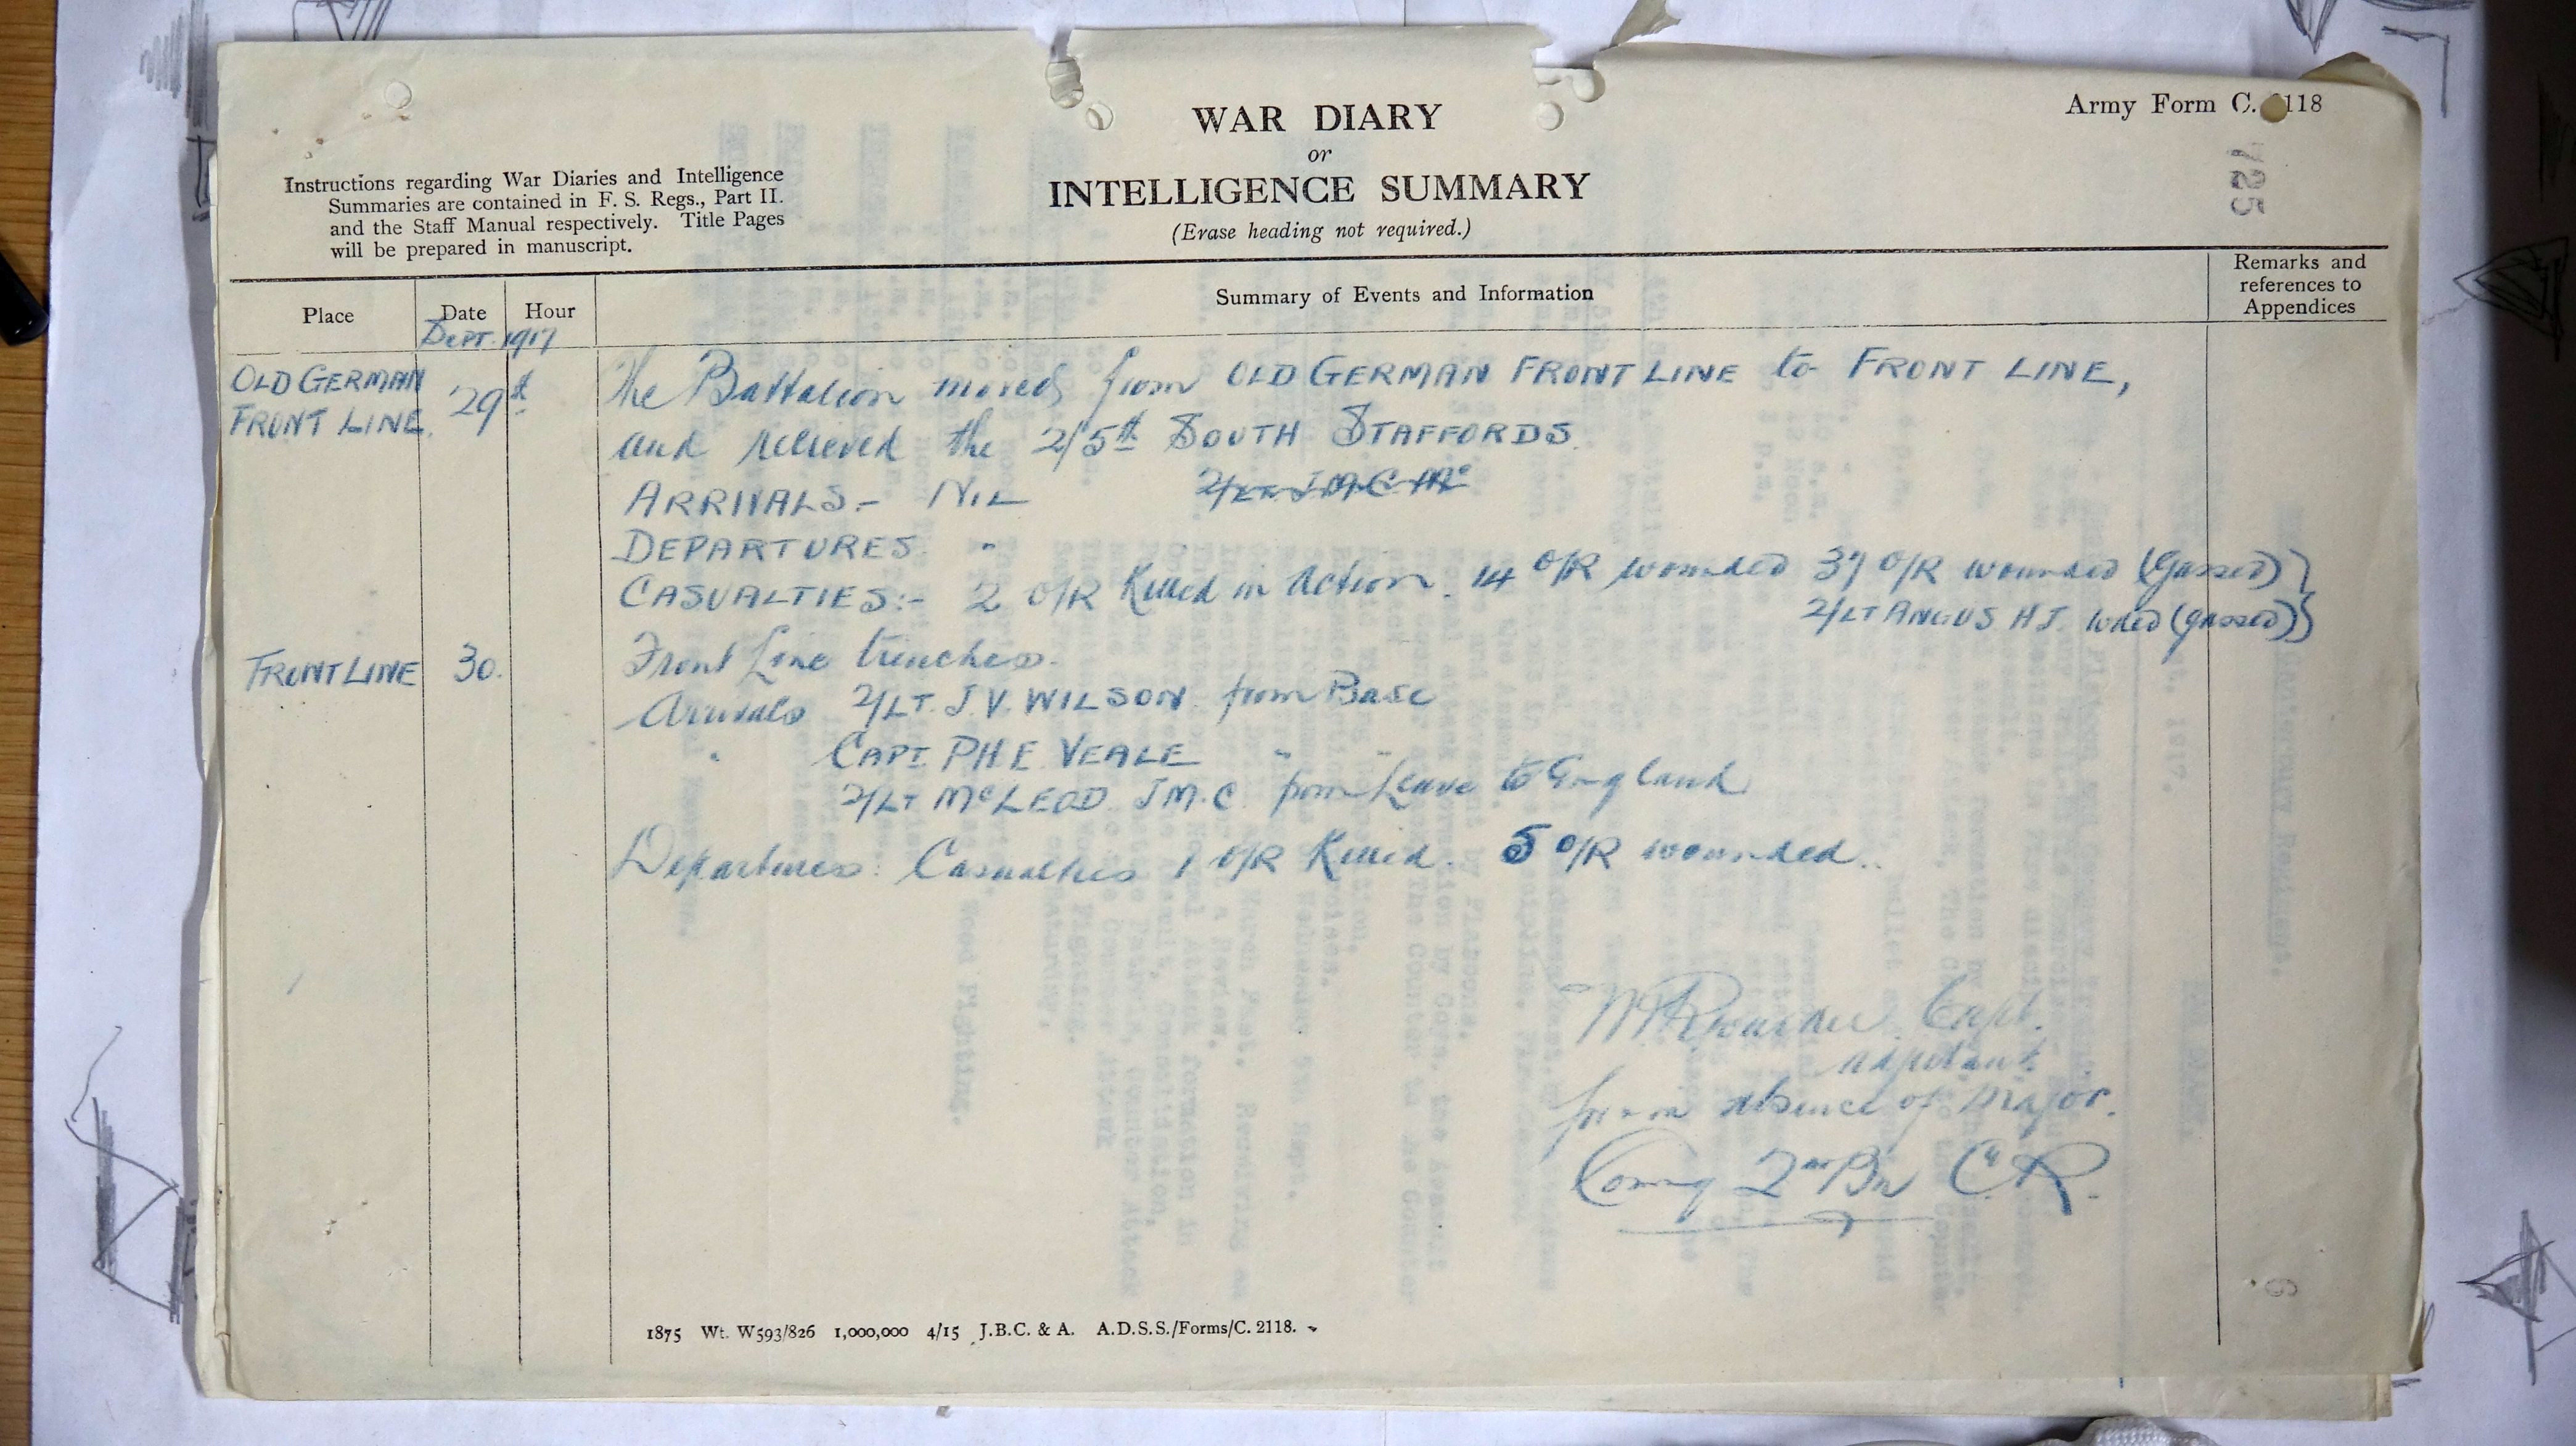 Army Form C. 2118
WAR DIARY
or
INTELLIGENCE SUMMARY
(Erase heading not required.)
Instructions regarding War Diaries and Intelligence
Summaries are contained in F. S. Regs., Part II.
and the Staff Manual respectively. Title Pages
will be prepared in manuscript.
Place Date Hour Summary of Events and Information Remarks and references to Appendices
SEPT. 1917
OLD GERMAN FRONT LINE. 29th The Battalion moved from OLD GERMAN FRONT LINE to FRONT LINE,
and relieved the 2/5th SOUTH STAFFORDS.
ARRIVALS.- NIL 2/LT J M C Mc
DEPARTURES "
CASUALTIES:- 2 O/R Killed in Action. 14 O/R wounded 37 O/R wounded (Gassed)
2/LT ANGUS H J. wded (gassed)
FRONT LINE 30. Front Line trenches.
Arrivals 2/LT. J. V. WILSON from Base
" CAPT P.H.E. VEALE " "
2/LT McLEOD J M.C. from Leave to England
Departures: Casualties 1 O/R Killed. 5 O/R wounded.
Capt.
Adjutant.
for in absence of Major.
Comdg 2nd Bn C.R.
1875 Wt. W593/826 1,000,000 4/15 J.B.C. & A. A.D.S.S./Forms/C. 2118.